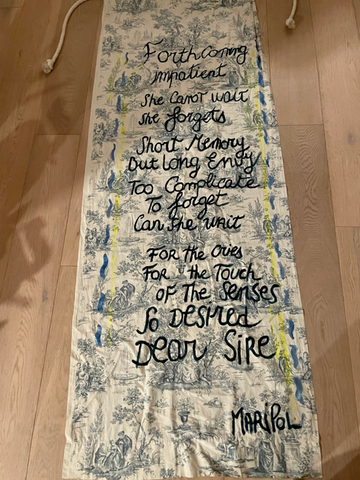 Forthcoming
impatient
She Canot wait
she forgets
Short Memory
But Long Envy
Too Complicate
To forget
Can she wait
For the ories
For the Touch
of The senses
So Desired
Dear Sire
MARIPOL